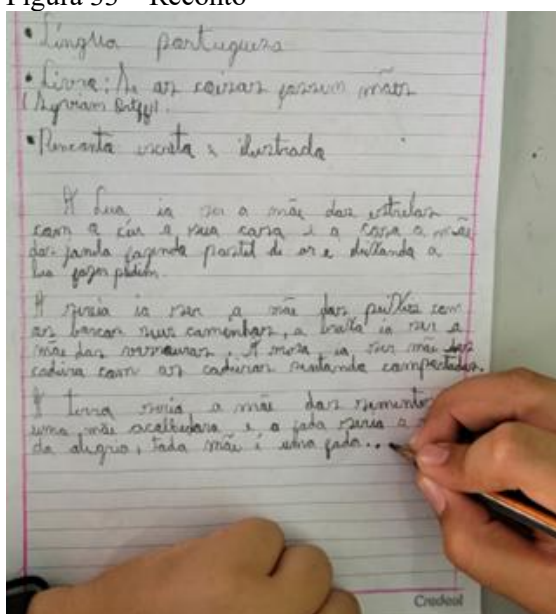 Figura 33 – Reconto
• Língua portuguesa
• Livro: Se as coisas fossem mães
(Sylvia Orthof).
• Reconto escrito e ilustrado
A Lua ia ser a mãe das estrelas
com o céu a sua casa e a casa a mãe
das janda fazendo pastel de ar e deixando a
lua fazer pudim.
A seria ia ser a mãe dos peixes com
os barcos seus caminhos, a bruxa ia ser a
mãe das vassouras. A mesa ia ser mãe das
cadeira com as cadeiras sentando
A terra seria a mãe das
uma mãe acolhedora e a fada seria a
da alegria, toda mãe é uma fada...
Credeal